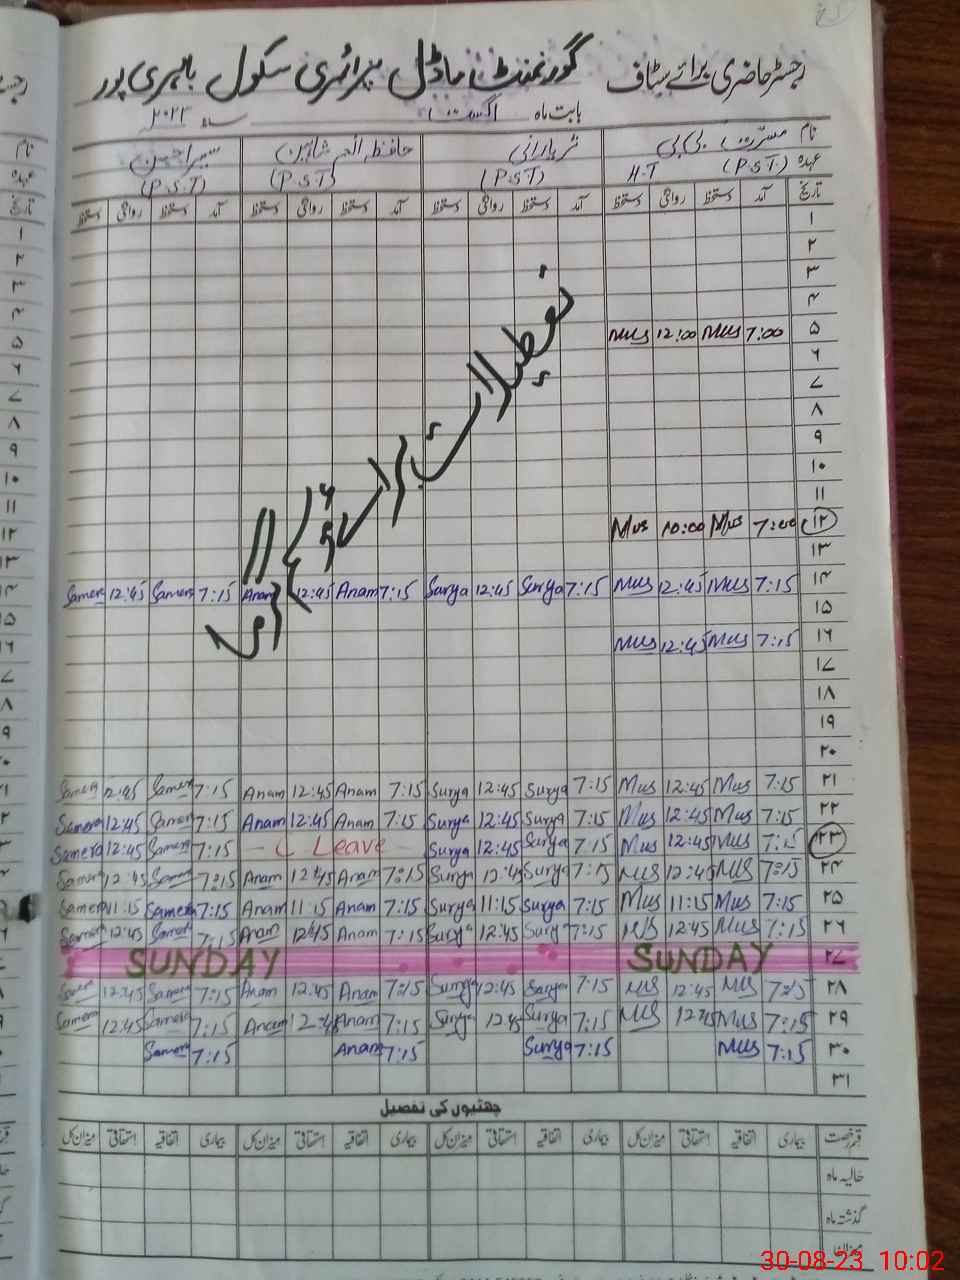 رجسٹر حاضری برائے سٹاف گورنمنٹ ماڈل پرائمری سکول
بابت ماہ اگست سنہ ۲۰۲۳
نام مسرت بی بی ثریا رانی
عہدہ (P.S.T) H.T (P.S.T) (P.S.T) (P.S.T)
تاریخ آمد دستخط روانگی دستخط آمد دستخط روانگی دستخط آمد دستخط روانگی دستخط آمد دستخط روانگی دستخط
۱
۲
۳
۴
۵ 7:00 Mus 12:00 Mus
۶
۷
۸
۹
۱۰
۱۱
۱۲ 7:00 Mus 10:00 Mus
۱۳
۱۴ 7:15 Mus 12:45 Mus 7:15 Surya 12:45 Surya 7:15 Anam 12:45 Anam 7:15 Samera 12:45 Samera
۱۵
۱۶ 7:15 Mus 12:45 Mus
۱۷
۱۸
۱۹
۲۰
تعطیلات
۲۱ 7:15 Mus 12:45 Mus 7:15 Surya 12:45 Surya 7:15 Anam 12:45 Anam 7:15 Samera 12:45 Samera
۲۲ 7:15 Mus 12:45 Mus 7:15 Surya 12:45 Surya 7:15 Anam 12:45 Anam 7:15 Samera 12:45 Samera
۲۳ 7:15 Mus 12:45 Mus 7:15 Surya 12:45 Surya C Leave 7:15 Samera 12:45 Samera
۲۴ 7:15 Mus 12:45 Mus 7:15 Surya 12:45 Surya 7:15 Anam 12:45 Anam 7:15 Samera 12:45 Samera
۲۵ 7:15 Mus 11:15 Mus 7:15 Surya 11:15 Surya 7:15 Anam 11:15 Anam 7:15 Samera 11:15 Samera
۲۶ 7:15 Mus 12:45 Mus 7:15 Surya 12:45 Surya 7:15 Anam 12:45 Anam 7:15 Samera 12:45 Samera
۲۷ SUNDAY SUNDAY
۲۸ 7:15 Mus 12:45 Mus 7:15 Surya 12:45 Surya 7:15 Anam 12:45 Anam 7:15 Samera 12:45 Samera
۲۹ 7:15 Mus 12:45 Mus 7:15 Surya 12:45 Surya 7:15 Anam 12:45 Anam 7:15 Samera 12:45 Samera
۳۰ 7:15 Mus 7:15 Surya 7:15 Anam 7:15 Samera
۳۱
چھٹیوں کی تفصیل
قسم رخصت بیماری اتفاقیہ استحقاقی میزان کل بیماری اتفاقیہ استحقاقی میزان کل بیماری اتفاقیہ استحقاقی میزان کل بیماری اتفاقیہ استحقاقی میزان کل
حالیہ ماہ
گذشتہ ماہ
میزان
30-08-23 10:02